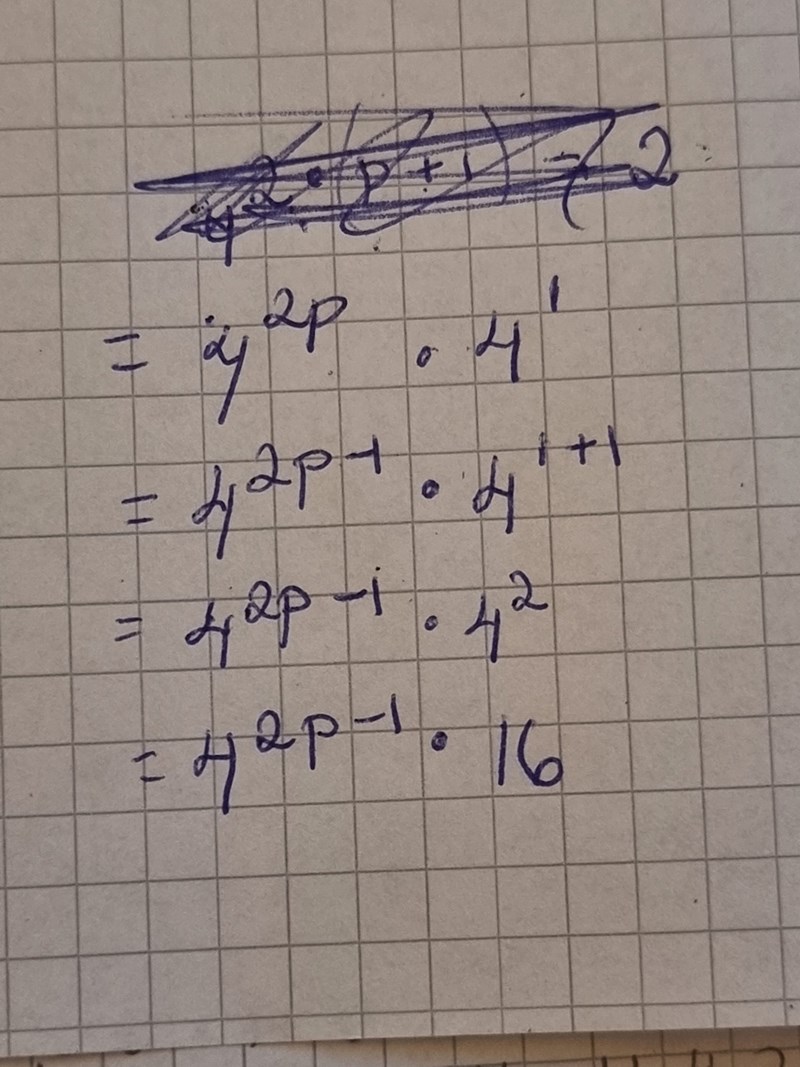 4^2·(p+1) - 2
= 4^2p · 4^1
= 4^2p-1 · 4^1+1
= 4^2p-1 · 4^2
= 4^2p-1 · 16